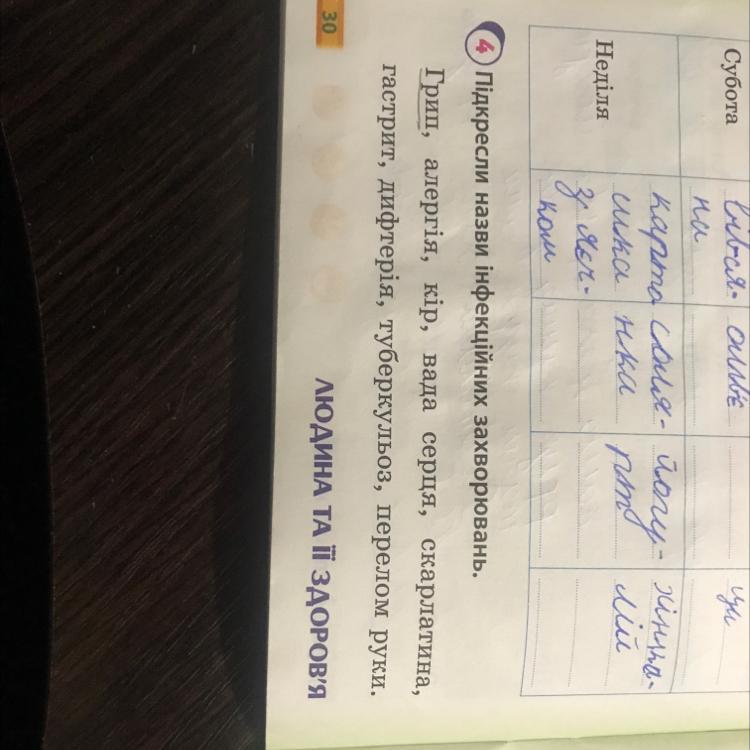 Субота
вів-ся-
ни
олив'є
Неділя
карто
шка
з яєч-
ком
соля-
нка
йогу-
рт
4 Підкресли назви інфекційних захворювань.
Грип, алергія, кір, вада серця, скарлатина,
гастрит, дифтерія, туберкульоз, перелом руки.
30
ЛЮДИНА ТА ЇЇ ЗДОРОВ'Я